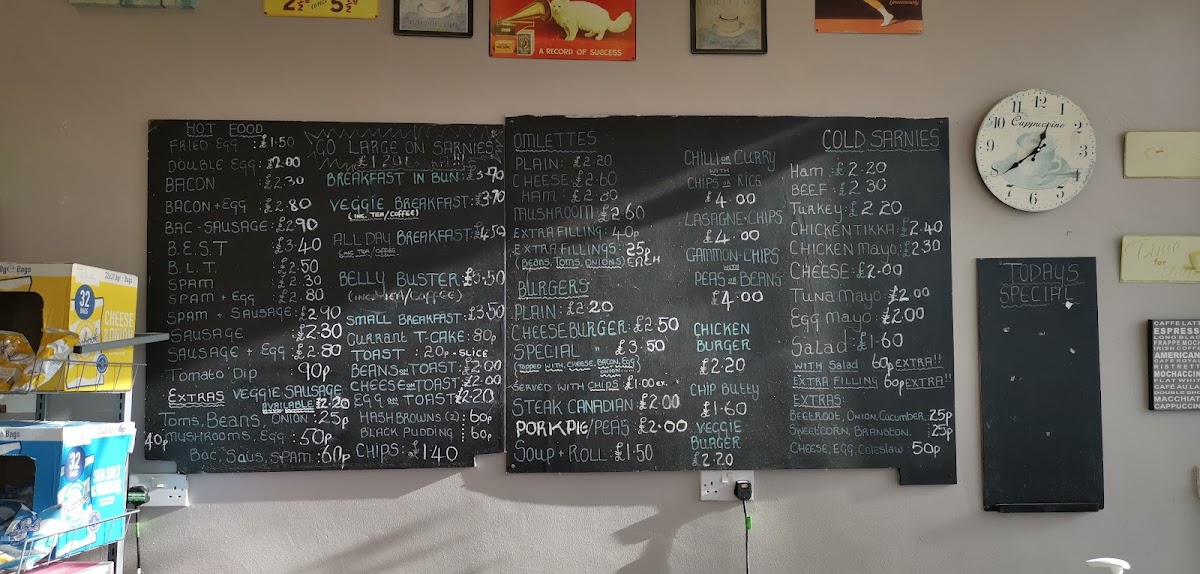 2½
5½
A RECORD OF SUCCESS
HOT FOOD
FRIED EGG : £1.50
DOUBLE EGG: £2.00
BACON : £2.30
BACON + EGG : £2.80
BAC-SAUSAGE: £2.90
B.E.S.T £3.40
B.L.T. £2.50
SPAM £2.30
SPAM + EGG : £2.80
SPAM + SAUSAGE: £2.90
SAUSAGE £2.30
SAUSAGE + EGG: £2.80
Tomato Dip 90p
EXTRAS VEGGIE SAUSAGE
AVAILABLE £2.20
Toms, Beans, ONION : 25p
40p MUSHROOMS, EGG : 50p
Bac, Saus, SPAM : 60p
GO LARGE ON SARNIES
£1.20 !!!
BREAKFAST IN BUN: £3.70
VEGGIE BREAKFAST: £3.70
(INC. TEA/COFFEE)
ALL DAY BREAKFAST: £4.50
INC TEA/COFFEE
BELLY BUSTER £6.50
(INC. TEA/COFFEE)
SMALL BREAKFAST: £3.50
CURRANT T-CAKE: 80p
TOAST : 20p-SLICE
BEANS ON TOAST: £2.00
CHEESE ON TOAST: £2.00
EGG ON TOAST £2.20
HASH BROWNS (2) : 60p
BLACK PUDDING : 60p
CHIPS: £1.40
OMLETTES
PLAIN: £2.20
CHEESE: £2.60
HAM: £2.30
MUSHROOM £2.60
EXTRA FILLING : 40p
EXTRA FILLINGS: 25p
(BEANS, TOMS, ONIONS) EACH
BURGERS
PLAIN: £2.20
CHEESEBURGER: £2.50
SPECIAL " : £3.50
(TOPPED WITH CHEESE, BACON, EGG)
ONION
SERVED WITH CHIPS £1.00 EX.
STEAK CANADIAN £2.00
PORK PIE/PEAS £2.00
SOUP + ROLL: £1.50
CHILLI OR CURRY
WITH
CHIPS OR RICE
£4.00
LASAGNE + CHIPS
£4.00
GAMMON + CHIPS
WITH
PEAS OR BEANS
£4.00
CHICKEN
BURGER
£2.20
CHIP BUTTY
£1.60
VEGGIE
BURGER
£2.20
COLD SARNIES
Ham : £2.20
BEEF : £2.30
Turkey : £2.20
CHICKEN TIKKA : £2.40
CHICKEN MAYO : £2.30
CHEESE : £2.00
TUNA MAYO : £2.00
Egg Mayo : £2.00
Salad : £1.60
WITH Salad 60p EXTRA!!
EXTRA FILLING 60p EXTRA!!
EXTRAS:
BEETROOT, ONION, CUCUMBER 25p
SWEETCORN, BRANSTON. : 25p
CHEESE, EGG, COLESLAW 50p
TODAYS
SPECIAL
Cappuccino
12
1
2
3
10
9
8
7
6
5
4
32
BAGS
CHEESE
& ONION
32
BAGS
SEA SALT
for
CAFFE LATTE
ESPRESSO
LONG BLACK
FRAPPE MOCHA
IRISH COFFEE
AMERICANO
CAFE ROYAL
RISTRETTO
MOCHACCINO
FLAT WHITE
CAFÉ AU LAIT
DOUBLE SHOT
MACCHIATO
CAPPUCCINO